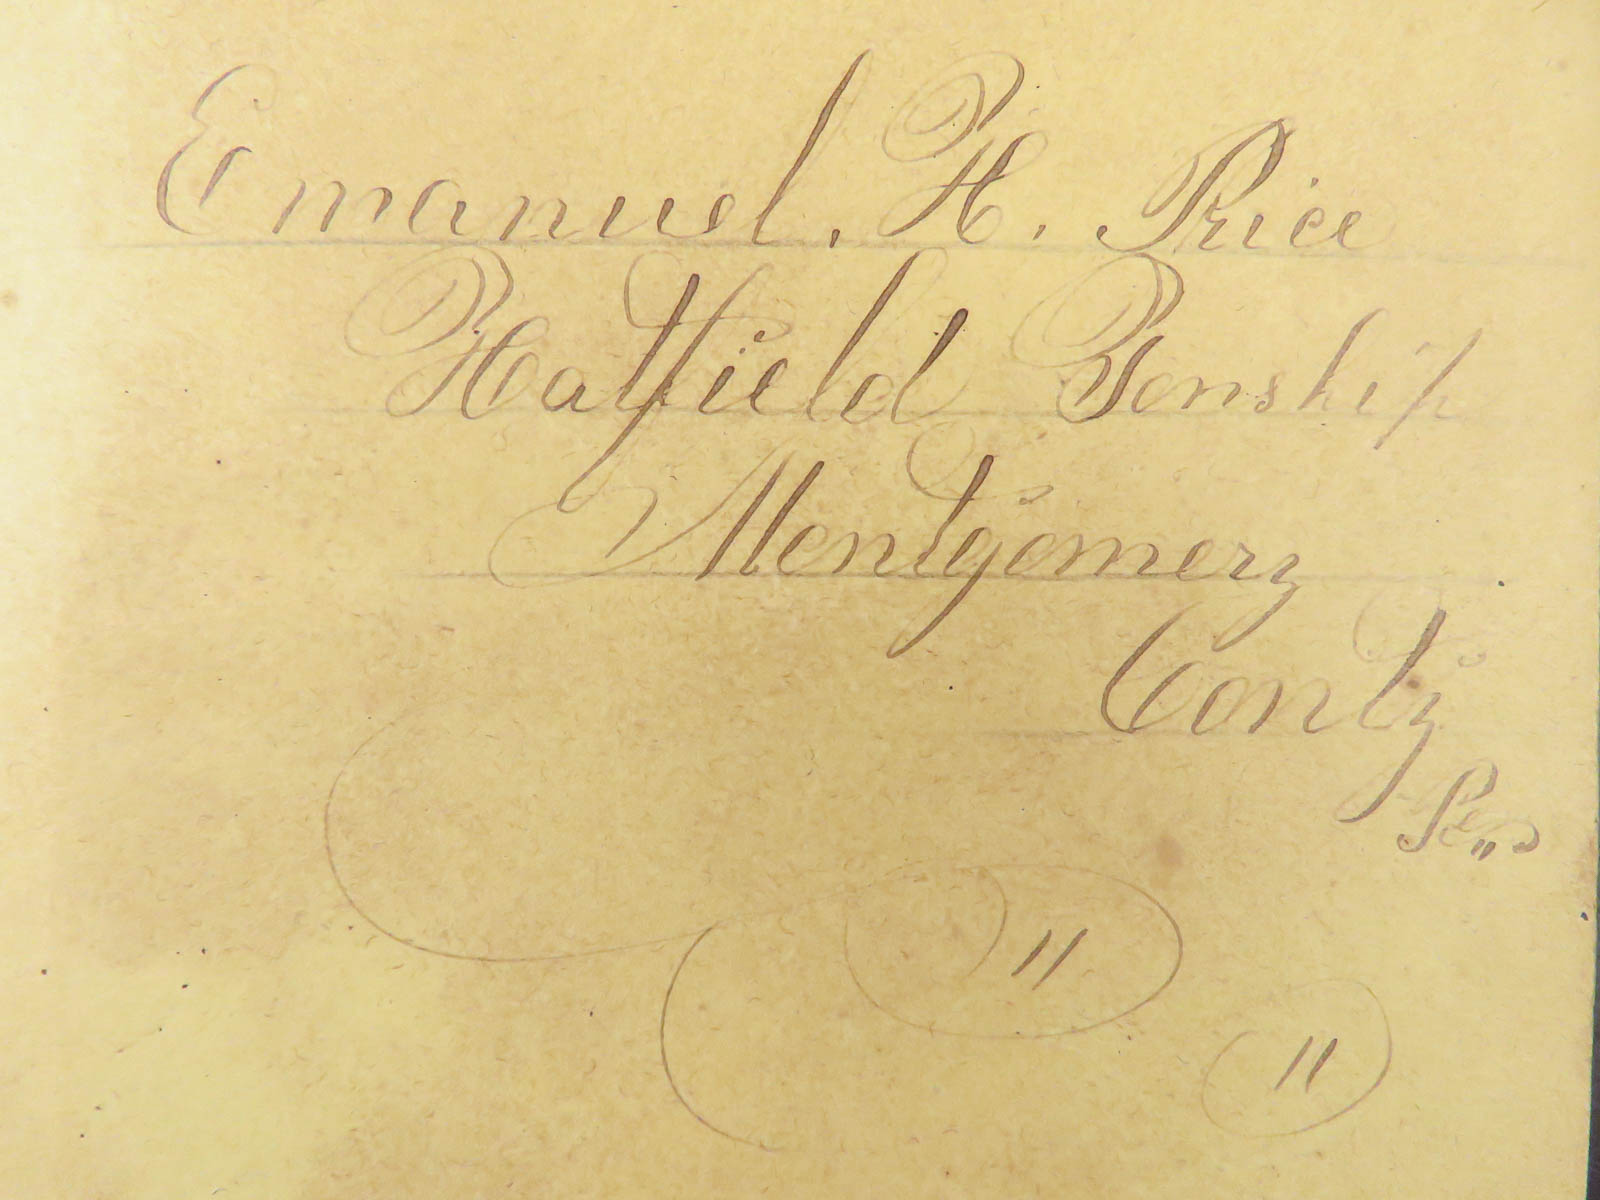 Emanuel. H. Price
Hatfield Tonship
Montgomery
Conty
Pe„
"
"